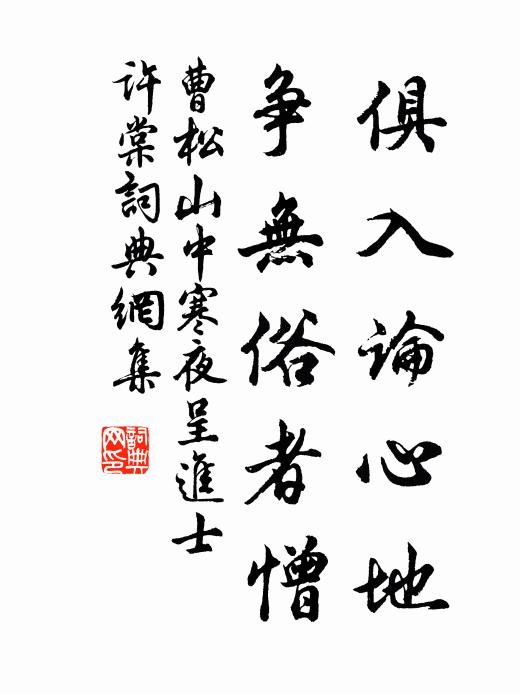 俱入論心地
爭無俗者憎
曹松山中寒夜呈進士
許棠詞典網集
詞典
网印